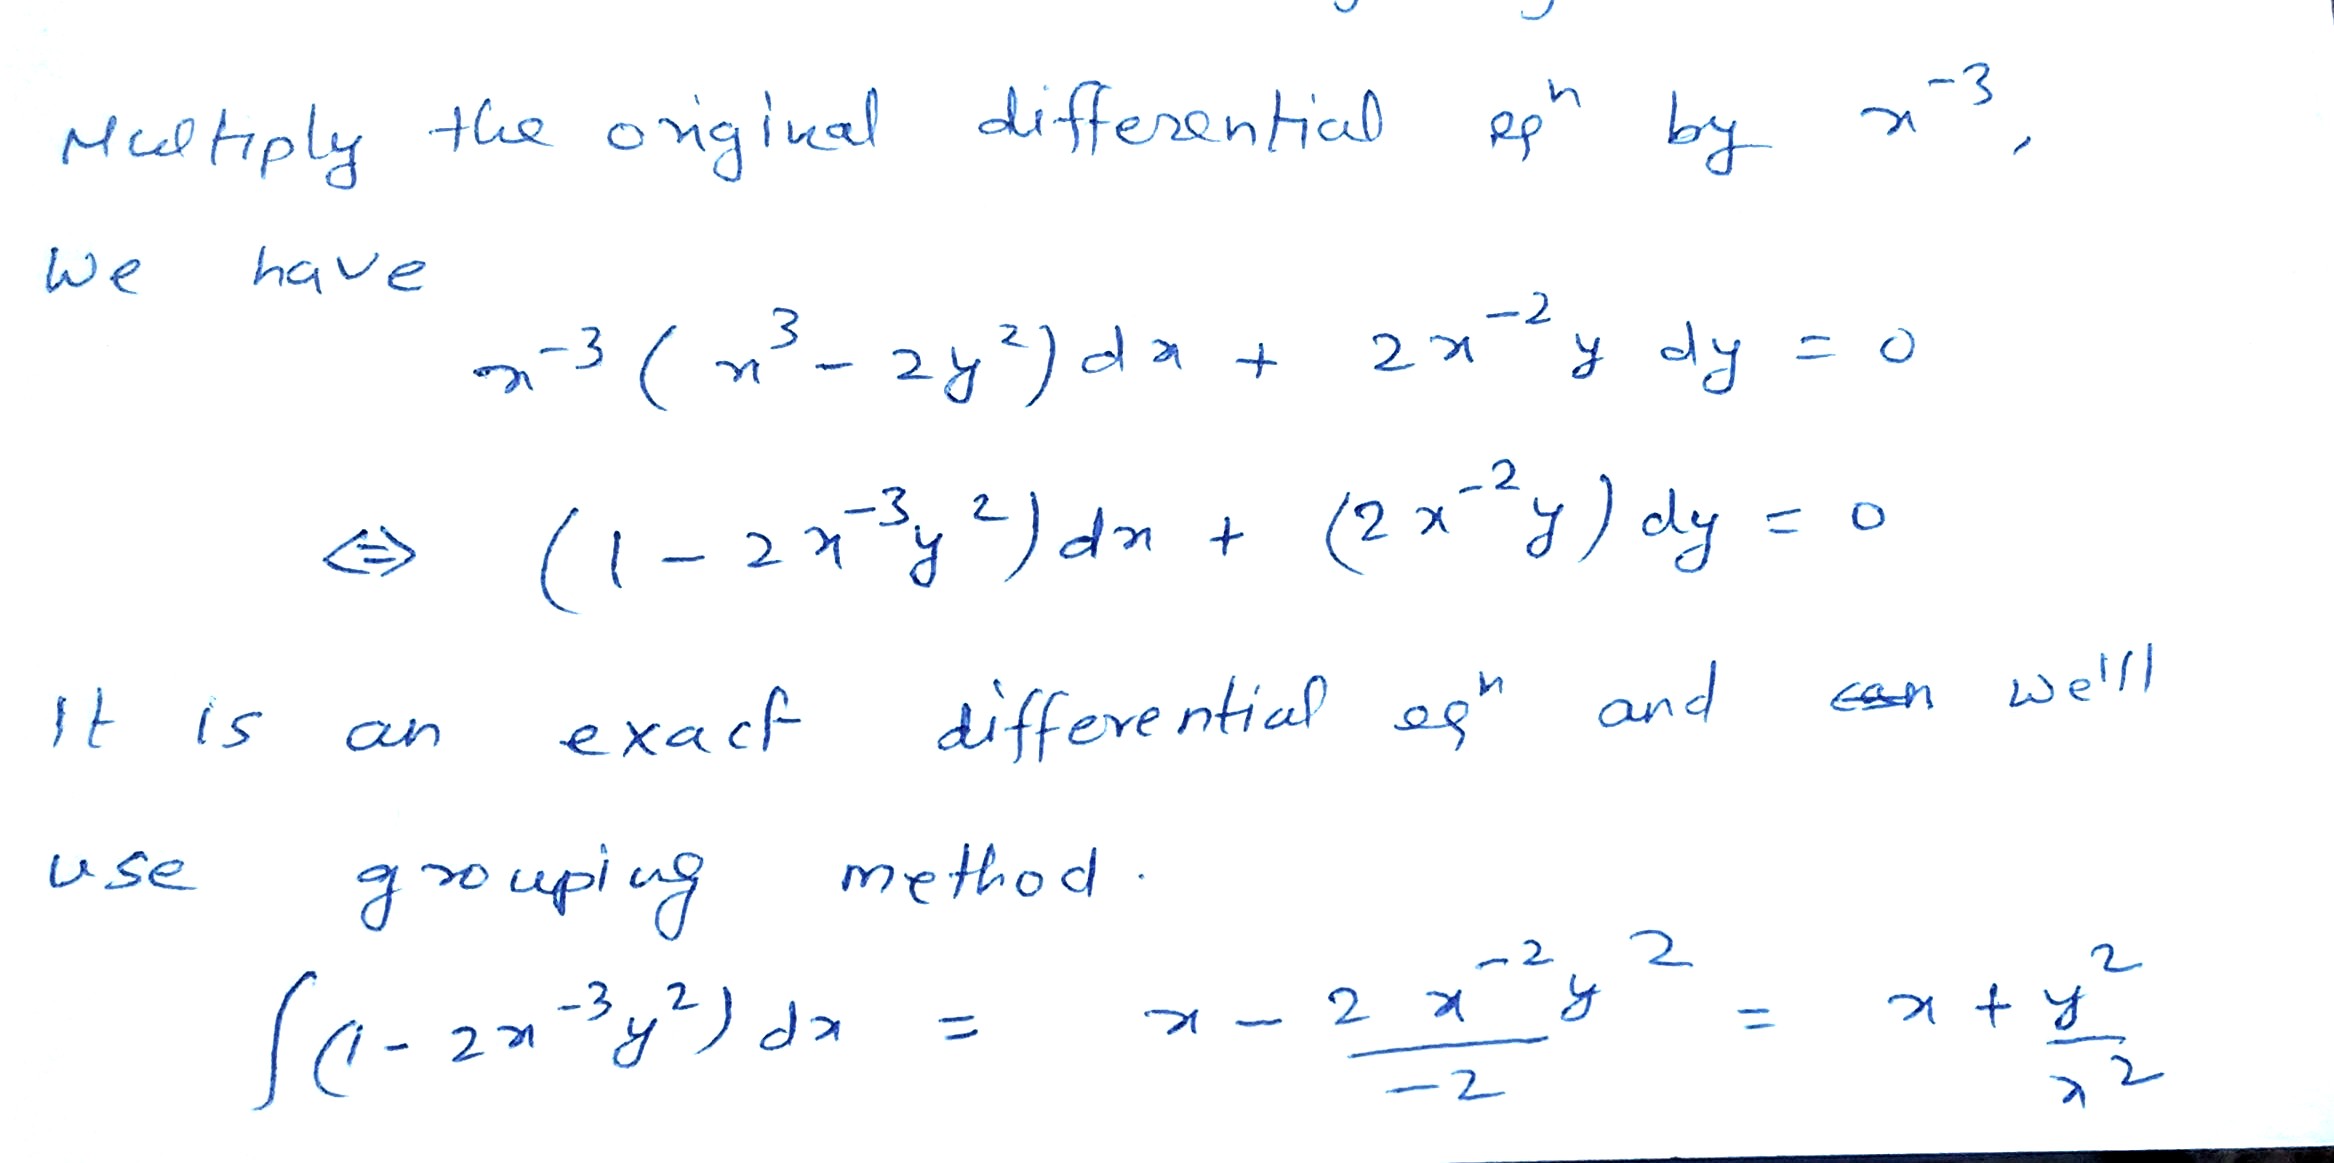 Multiply the original differential eqⁿ by x⁻³,
we have
x⁻³ ( x³ - 2y²) dx + 2x⁻² y dy = 0
⇔ (1 - 2x⁻³y²) dx + (2x⁻²y) dy = 0
It is an exact differential eqⁿ and we'll
use grouping method.
∫(1 - 2x⁻³y²) dx = x - 2 x⁻²/-2 y² = x + y²/x²